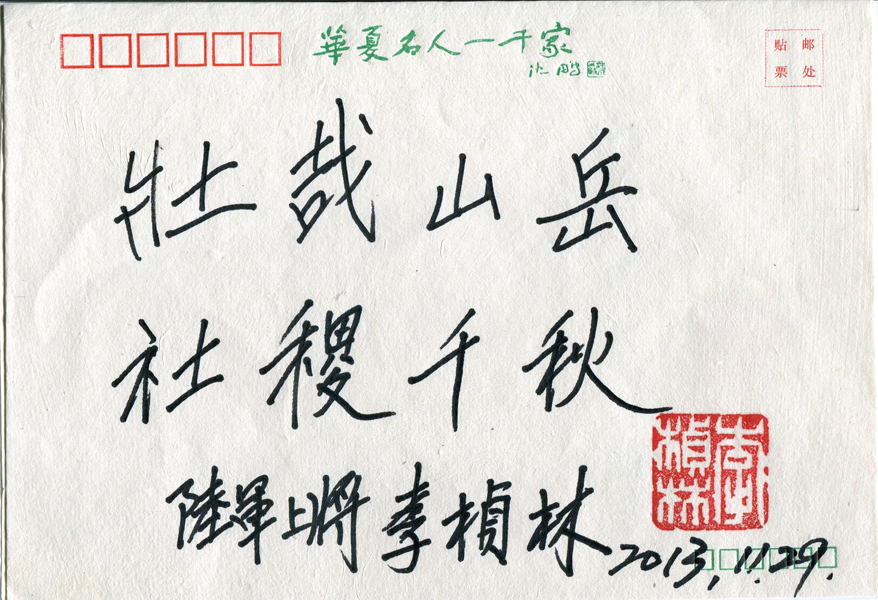 華夏名人一千家
沈鹏
贴 邮
票 处
壯哉山岳
社稷千秋
陸軍上將李楨林
李楨林
2013.11.29.